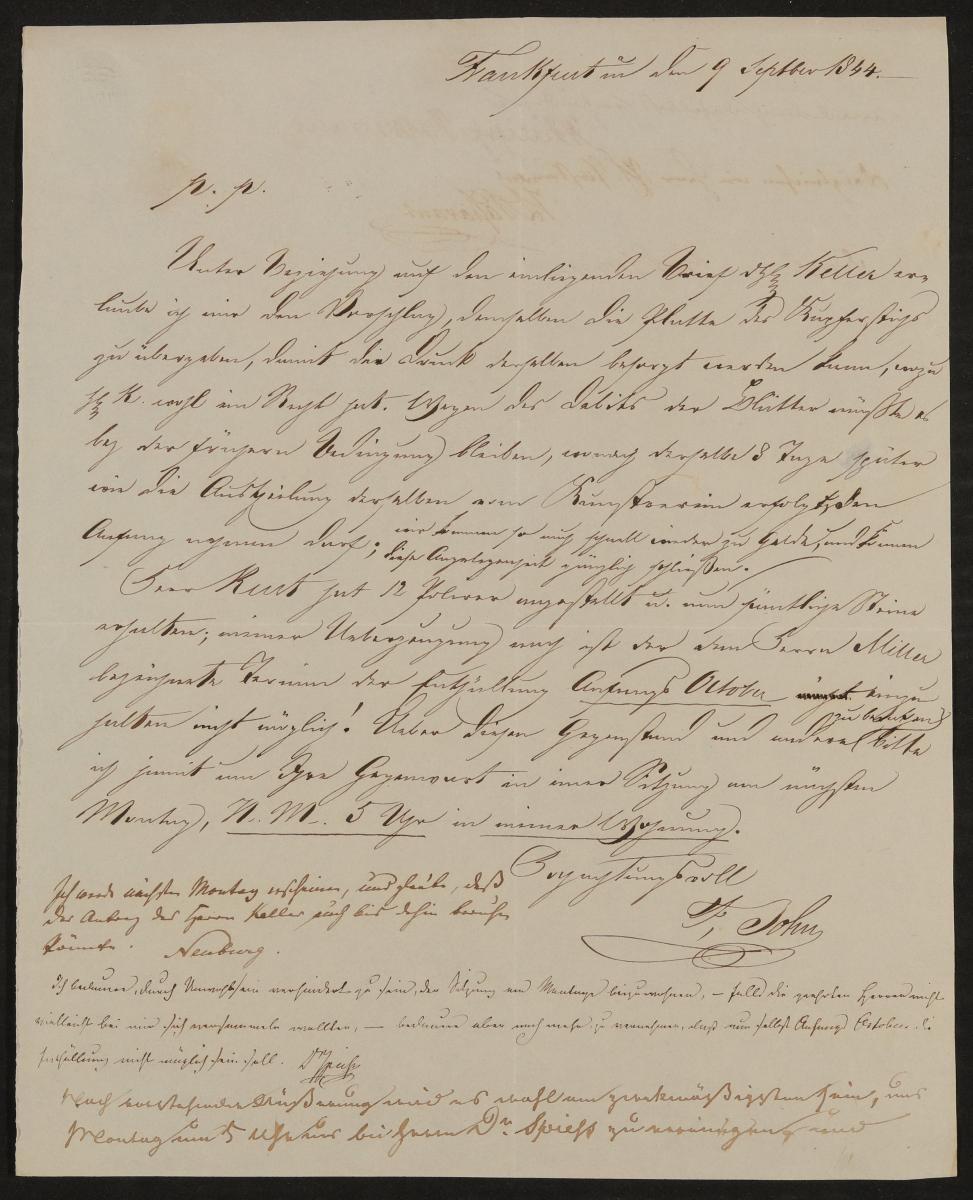 Frankfurt am den 9 Septber 1844.
p. p.
Unter Beziehung auf den einliegenden Brief des Keller er=
laube ich mir den Vorschlag, demselben die Platte des Kupferstichs
zu übergeben, damit der Druck derselben besorgt werden kann, wozu
H. K. wohl ein Recht hat. Wegen des Debits der Blätter müßte es
bey der frühern Bedingung bleiben, wonach derselbe 8 Tage später
wie die Austheilung derselben vom Kunstverein erfolgt, den
Anfang nehmen darf; wir kommen so auch schnell wieder zu Gelde, und können
diese Angelegenheit gänzlich schließen.
Herr Kurt hat 12 Polirer angestellt u. nun sämtliche Steine
erhalten; meiner Ueberzeugung nach ist der dem Herrn Miller
bezeichnete Termin der Enthüllung Anfangs October einzu
halten nicht möglich! Ueber diesen Gegenstand und andere bitte
ich hiemit um Ihre Gegenwart in einer Sitzung am nächsten
Montag, N. M. 5 Uhr in meiner Wohnung.
Hochachtungsvoll
F. John
Ich werde nächsten Montag erscheinen, und glaube, daß
der Antrag des Herrn Keller auch bis dahin beruhen
könnte. Neuburg.
Ich bedaure, durch Unwohlsein verhindert zu sein, der Sitzung am Montage beizuwohnen, — falls die geehrten Herren nicht
vielleicht bei mir sich versammeln wollten, — bedaure aber noch mehr zu vernehmen, daß nun selbst Anfangs October die
Enthüllung nicht möglich sein soll. Dr Spieß
Nach vorstehender Äußerung wird es wohl am zweckmäßigsten sein, uns
Montag um 5 Uhr bei Herrn Dr. Spiess zu vereinigen, und